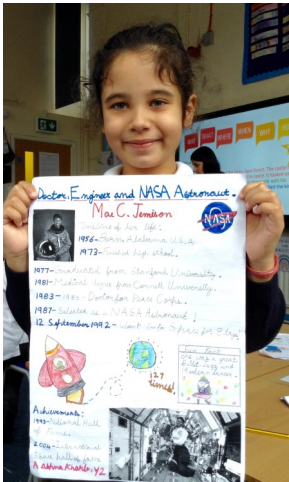 WHAT WHERE WHEN WHY
Doctor, Engineer and NASA Astronaut.
Mae C. Jemison
NASA
Timeline of her life:
1956- Born Alabama U.S.A
1973- Finished high school.
1977- Graduated from Stanford University.
1981- Medical degree from Cornell University.
1983 - 1985 - Doctor for Peace Corps.
1987- Selected as a NASA Astronaut!
12 September 1992 - Went into Space for
127
times!
Fun Fact
Achievements:
1993- National Hall
of Fame.
2004- International
Space hall of fame
Y2